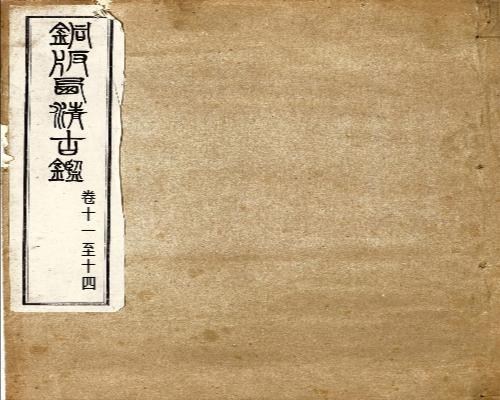 銅版西清古鑑
卷十一至十四